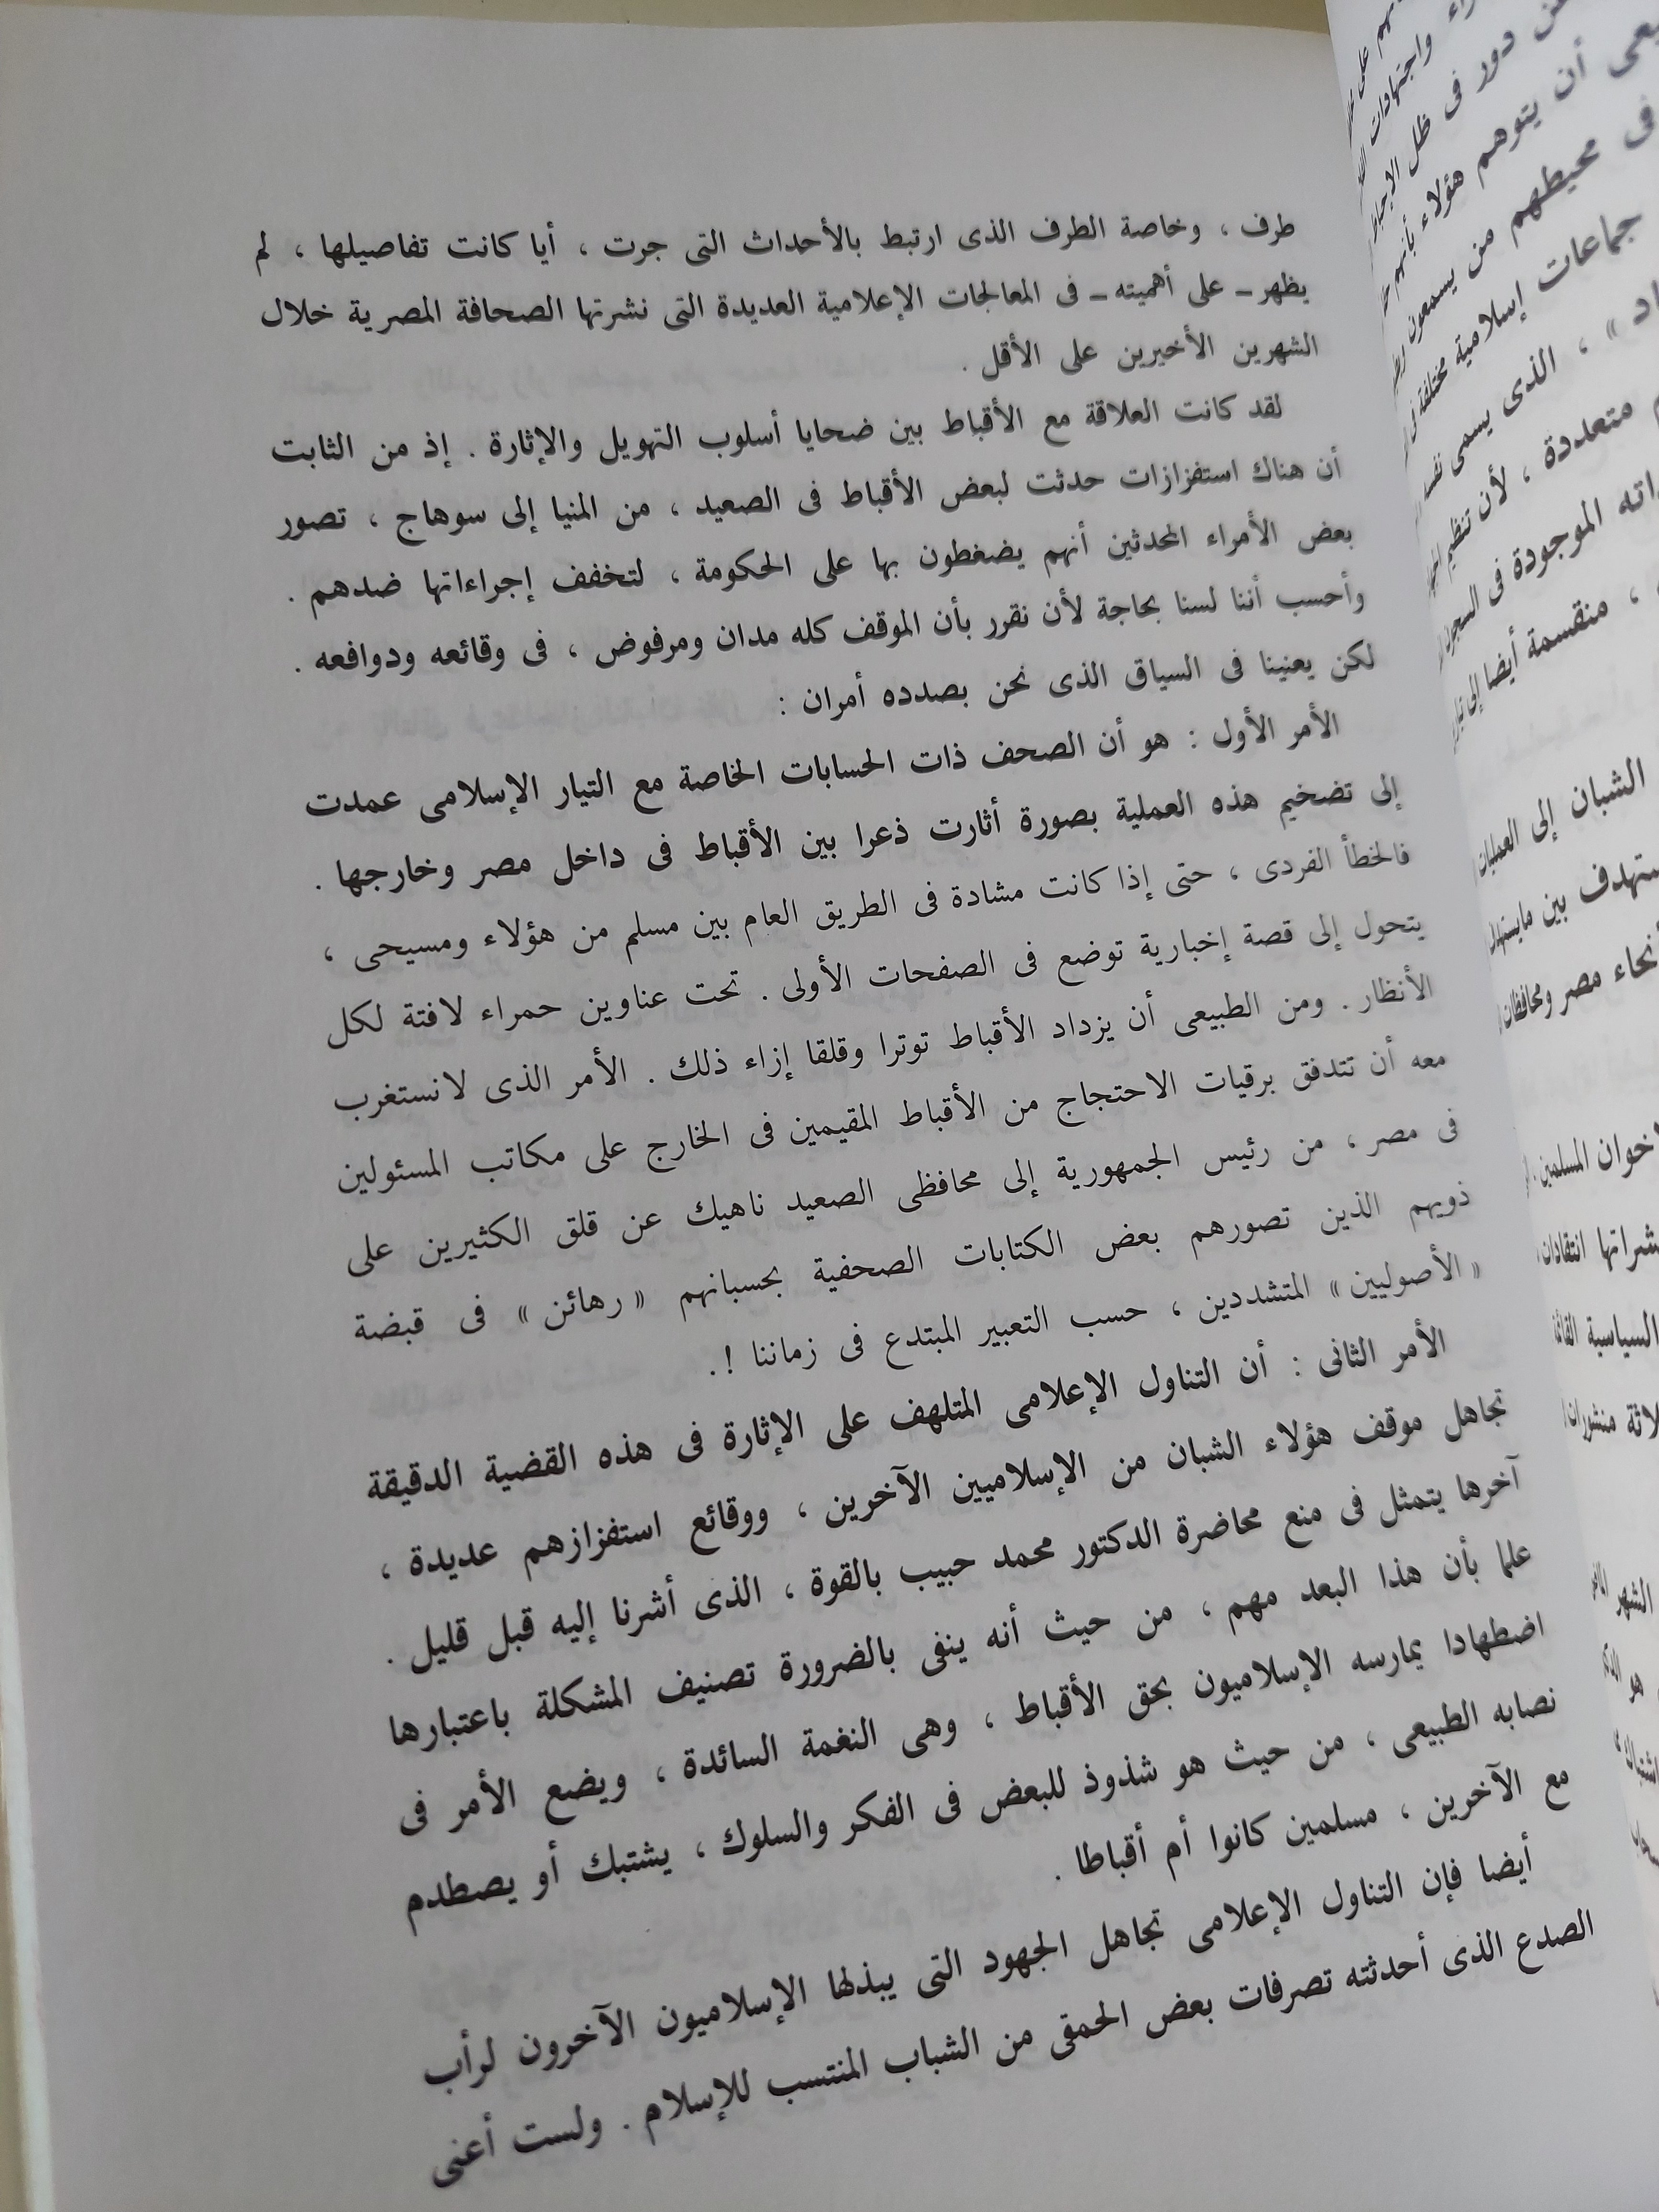 طرف ، وخاصة الطرف الذى ارتبط بالأحداث التى جرت ، أيا كانت تفاصيلها ، لم
يظهر ـ على أهميته ـ فى المعالجات الإعلامية العديدة التى نشرتها الصحافة المصرية خلال
الشهرين الأخيرين على الأقل .
لقد كانت العلاقة مع الأقباط بين ضحايا أسلوب التهويل والإثارة . إذ من الثابت
أن هناك استفزازات حدثت لبعض الأقباط فى الصعيد ، من المنيا إلى سوهاج ، تصور
بعض الأمراء المحدثين أنهم يضغطون بها على الحكومة ، لتخفف إجراءاتها ضدهم .
وأحسب أننا لسنا بحاجة لأن نقرر بأن الموقف كله مدان ومرفوض ، فى وقائعه ودوافعه .
لكن يعنينا فى السياق الذى نحن بصدده أمران :
الأمر الأول : هو أن الصحف ذات الحسابات الخاصة مع التيار الإسلامى عمدت
إلى تضخيم هذه العملية بصورة أثارت ذعرا بين الأقباط فى داخل مصر وخارجها .
فالخطأ الفردى ، حتى إذا كانت مشادة فى الطريق العام بين مسلم من هؤلاء ومسيحى ،
يتحول إلى قصة إخبارية توضع فى الصفحات الأولى . تحت عناوين حمراء لافتة لكل
الأنظار . ومن الطبيعى أن يزداد الأقباط توترا وقلقا إزاء ذلك . الأمر الذى لانستغرب
معه أن تتدفق برقيات الاحتجاج من الأقباط المقيمين فى الخارج على مكاتب المسئولين
فى مصر ، من رئيس الجمهورية إلى محافظى الصعيد ناهيك عن قلق الكثيرين على
ذويهم الذين تصورهم بعض الكتابات الصحفية بحسبانهم « رهائن » فى قبضة
« الأصوليين » المتشددين ، حسب التعبير المبتدع فى زماننا !.
الأمر الثانى : أن التناول الإعلامى المتلهف على الإثارة فى هذه القضية الدقيقة
تجاهل موقف هؤلاء الشبان من الإسلاميين الآخرين ، ووقائع استفزازهم عديدة ،
آخرها يتمثل فى منع محاضرة الدكتور محمد حبيب بالقوة ، الذى أشرنا إليه قبل قليل .
علما بأن هذا البعد مهم ، من حيث أنه ينفى بالضرورة تصنيف المشكلة باعتبارها
اضطهادا يمارسه الإسلاميون بحق الأقباط ، وهى النغمة السائدة ، ويضع الأمر فى
نصابه الطبيعى ، من حيث هو شذوذ للبعض فى الفكر والسلوك ، يشتبك أو يصطدم
مع الآخرين ، مسلمين كانوا أم أقباطا .
أيضا فإن التناول الإعلامى تجاهل الجهود التى يبذلها الإسلاميون الآخرون لرأب
الصدع الذى أحدثته تصرفات بعض الحمقى من الشباب المنتسب للإسلام . ولست أعنى
واجتهادات
دور فى ظل
أن يتوهم هؤلاء بأنهم
فى محيطهم من يسمعون
جماعات إسلامية مختلفة
، الذى يسمى
متعددة ، لأن تنظيم
الموجودة فى
، منقسمة أيضا إلى
الشبان إلى العمليات
بين
أنحاء مصر ومحافظات
المسلمين
انتقادات
السياسية
الشهر
هو